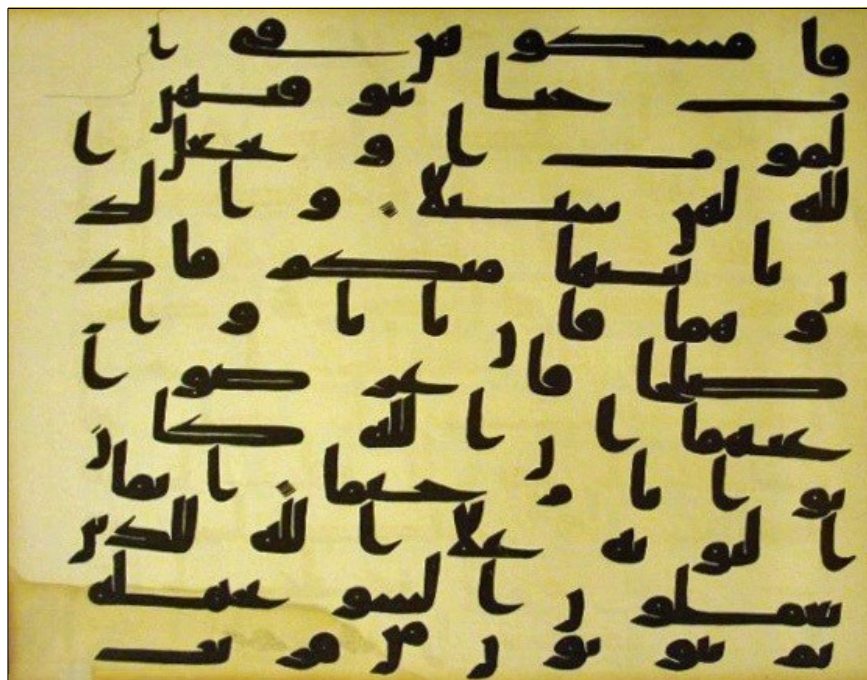 فامسكوهن في ا
لبيت حتى يتوفيهن
الموت او يجعل ا
لله لهن سبيلا والذ
ن ياتينها منكم فاذ
وهما فان تابا وا
صلحا فاعرضوا
عنهما ان الله كا
ن توابا رحيما انما
التوبه علا الله للذين
يعملون السو بجهله
ثم يتوبون من قريب